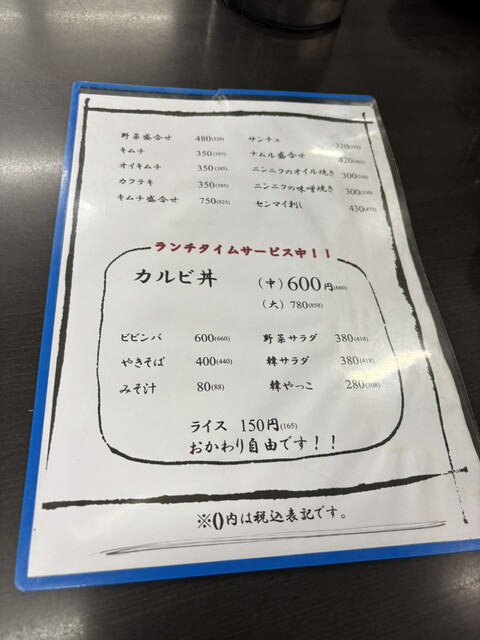 野菜盛合せ 480(528) サンチュ 320(352)
キムチ 350(385) ナムル盛合せ 420(462)
オイキムチ 350(385) ニンニクのオイル焼き 300(330)
カクテキ 350(385) ニンニクの味噌焼き 300(330)
キムチ盛合せ 750(825) センマイ刺し 430(473)
ランチタイムサービス中！！
カルビ丼 (中) 600円(660)
(大) 780(858)
ビビンバ 600(660) 野菜サラダ 380(418)
やきそば 400(440) 韓サラダ 380(418)
みそ汁 80(88) 韓やっこ 280(308)
ライス 150円(165)
おかわり自由です！！
※()内は税込表記です。